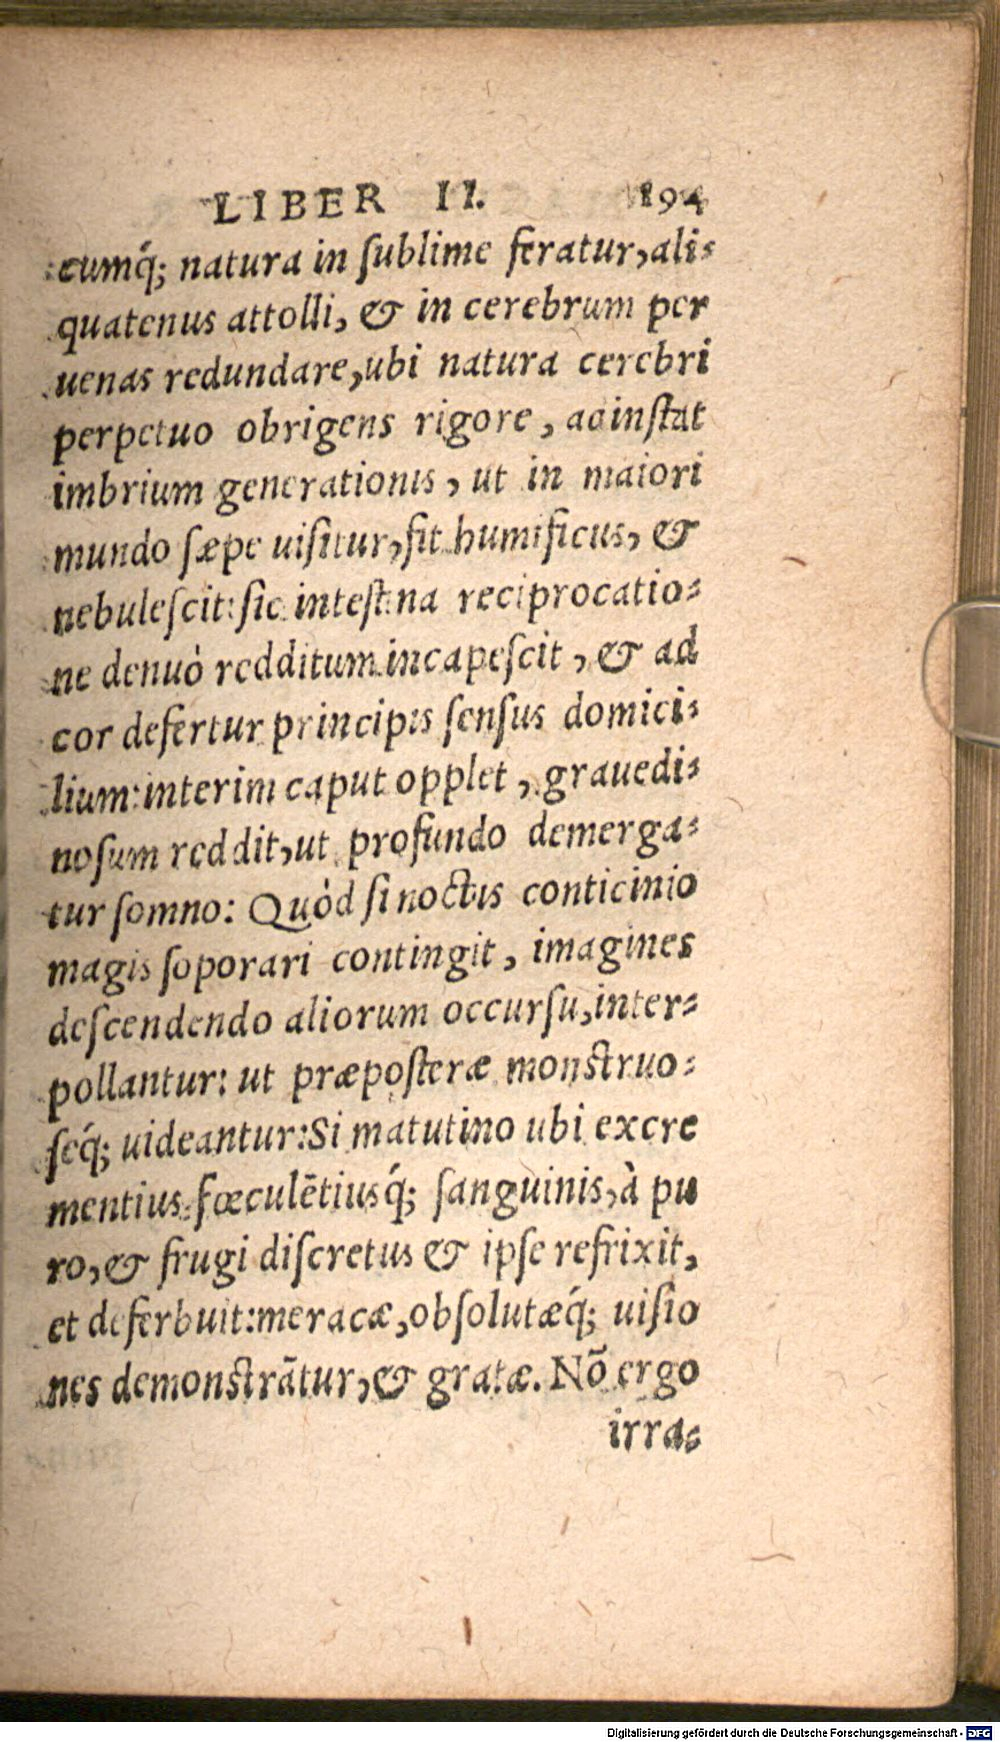 LIBER II. 194
cumq́; natura in ſublime feratur, ali-
quatenus attolli, & in cerebrum per
uenas redundare, ubi natura cerebri
perpetuo obrigens rigore, ad inſtat
imbrium generationis, ut in maiori
mundo ſæpe uiſitur, fit humificus, &
nebuleſcit: ſic inteſtina reciprocatio-
ne denuò redditum incapeſcit, & ad
cor defertur principis ſenſus domici-
lium: interim caput opplet, grauedi-
noſum reddit, ut profundo demerga-
tur ſomno: Quòd ſi noctis conticinio
magis ſoporari contingit, imagines
deſcendendo aliorum occurſu, inter-
pollantur: ut præpoſteræ monſtruo-
ſeq́; uideantur: Si matutino ubi excre
mentius fœculētiusq́; ſanguinis, à pu
ro, & frugi diſcretus & ipſe refrixit,
et deferbuit: meracæ, obſolutæq́; uiſio
nes demonſtrātur, & gratæ. Nō ergo
irra-
Digitalisierung gefördert durch die Deutsche Forschungsgemeinschaft - DFG